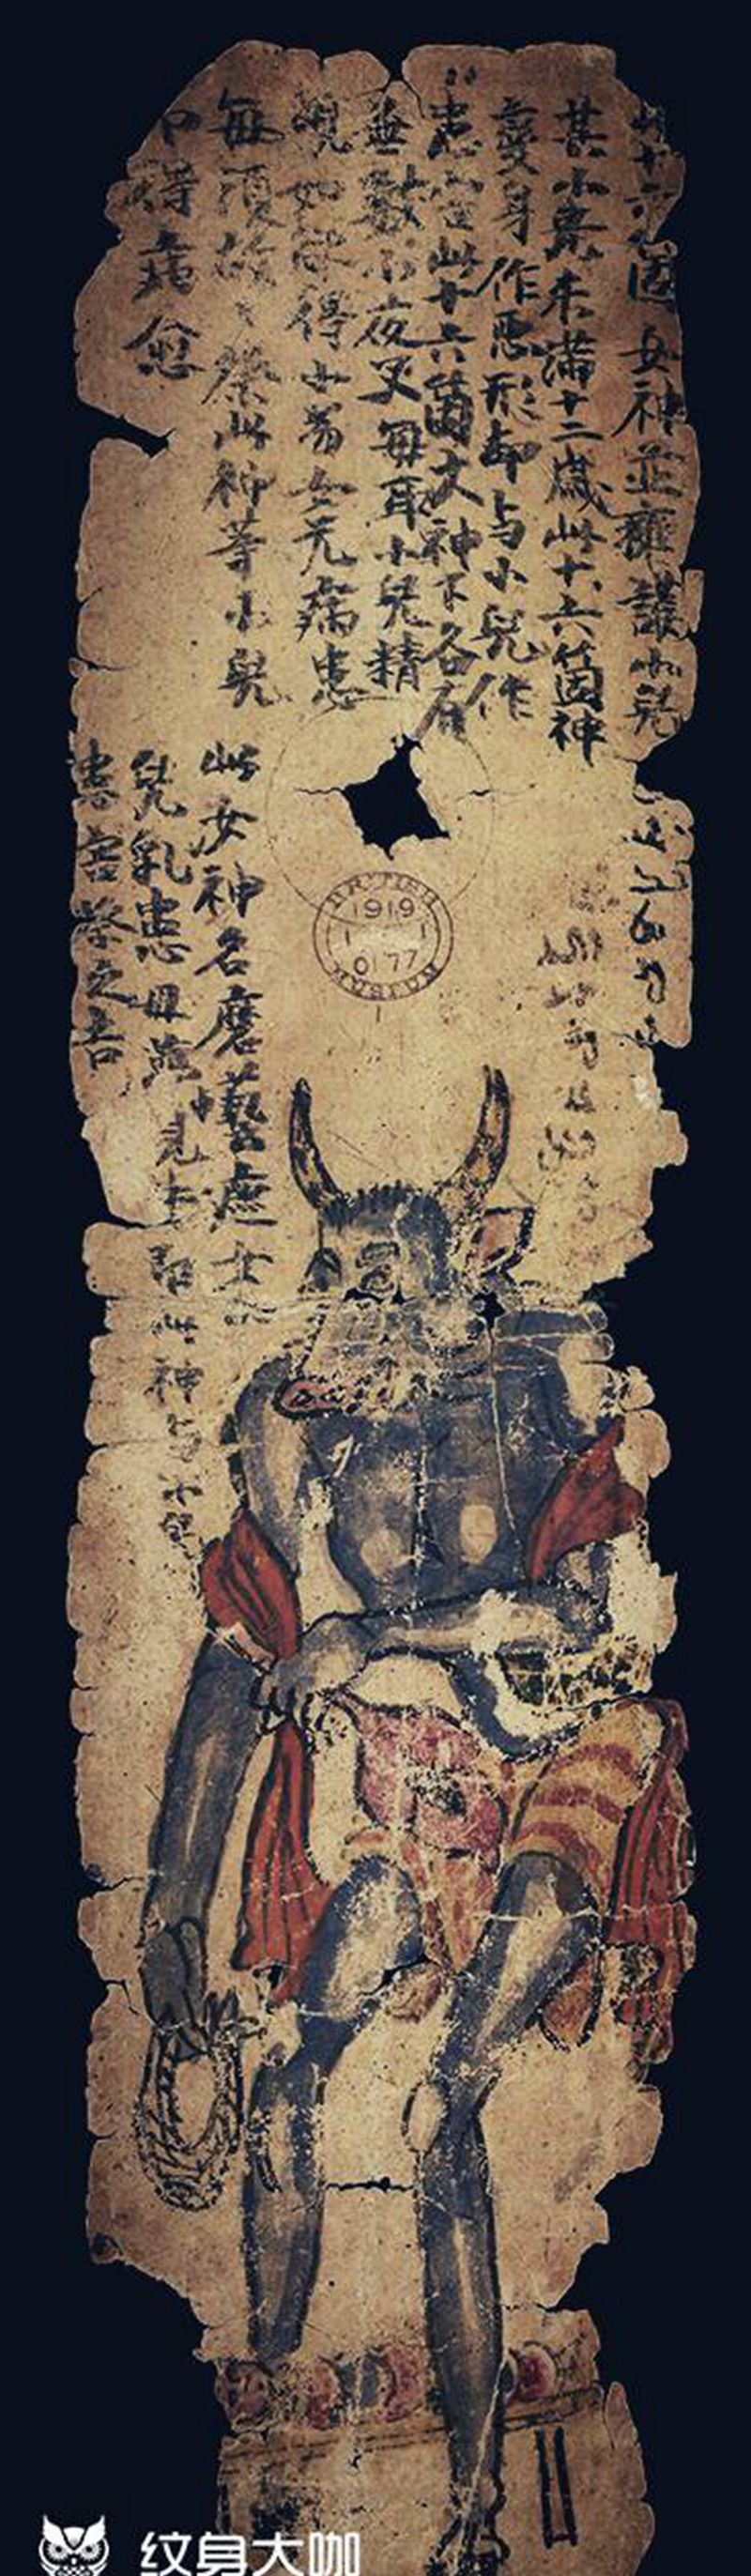 此十六箇女神並擁護小兒
其小兒未滿十二歲此十六箇神
變身作惡形却与小兒作
患害此十六箇大神下各有
無數小夜叉每取小兒精
魂如欲得小男女无病患
每須故〻祭此神等小兒
即得病愈
此女神名磨藝遮女
兒乳患母 見牛即此神与小兒
患害祭之吉
BRITISH MUSEUM
1919
1 1
0177
纹身大咖